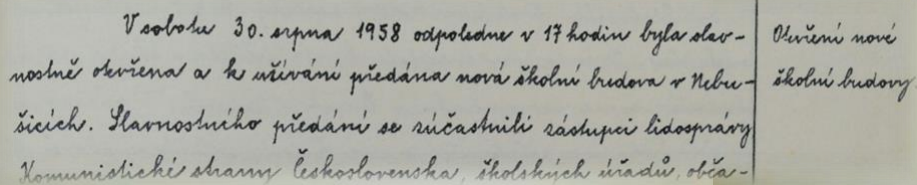 V sobotu 30. srpna 1958 odpoledne v 17 hodin byla slav-
nostně otevřena a k užívání předána nová školní budova v Nebu-
šicích. Slavnostního předání se zúčastnili zástupci lidosprávy
Komunistické strany Československa, školských úřadů, obča-
Otevření nové
školní budovy